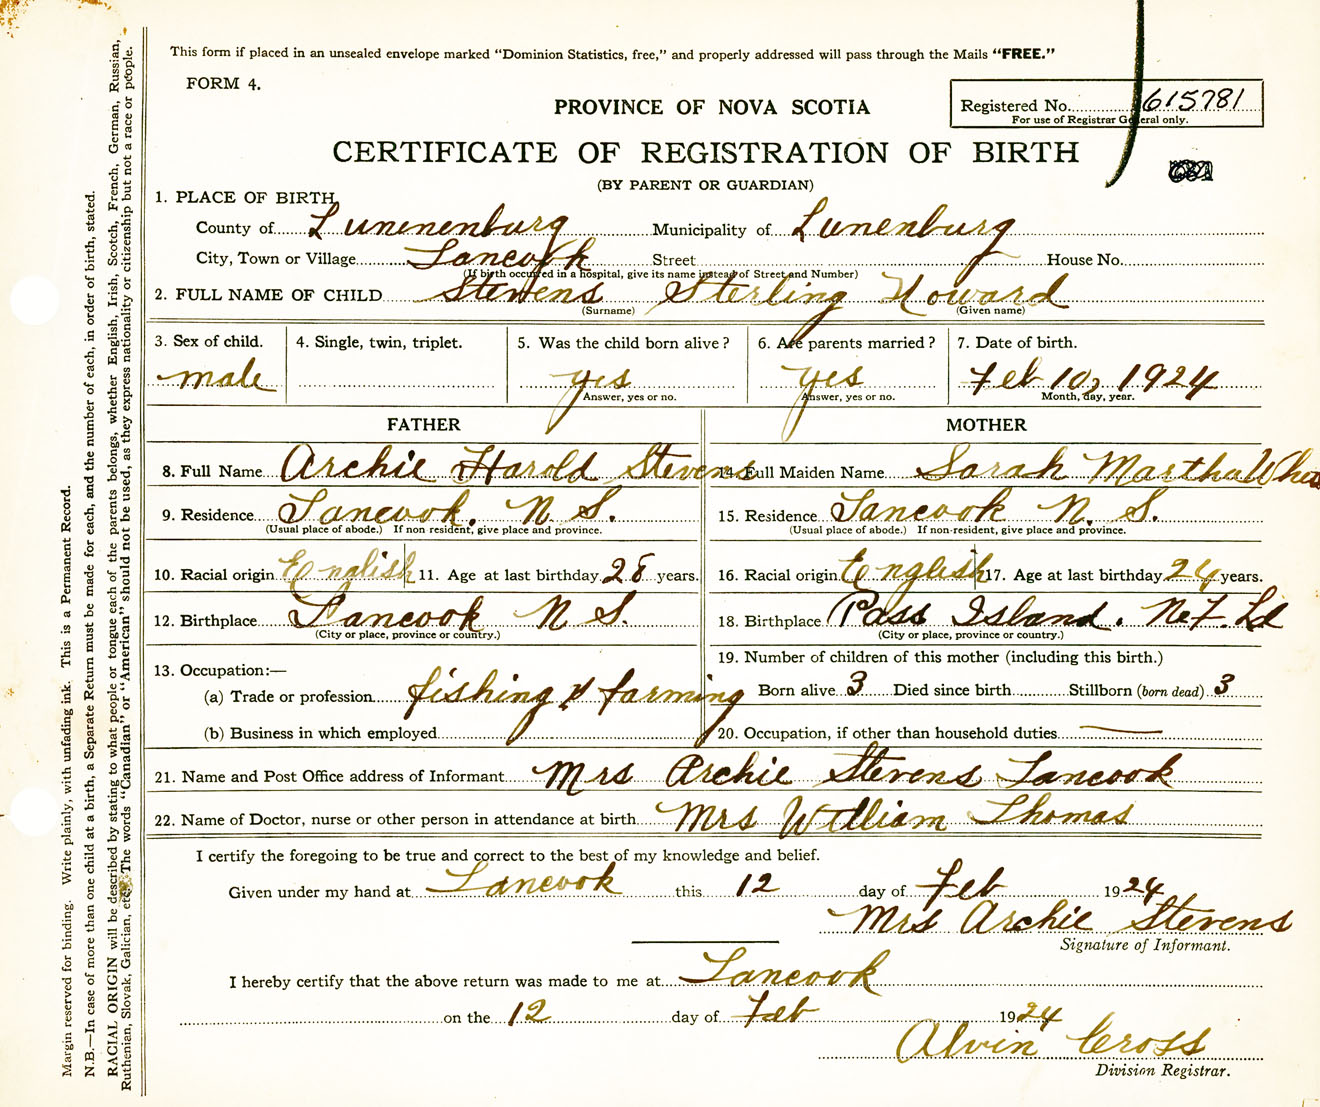 This form if placed in an unsealed envelope marked "Dominion Statistics, free," and properly addressed will pass through the Mails "FREE."
FORM 4.
PROVINCE OF NOVA SCOTIA
Registered No. 615781
For use of Registrar General only.
CERTIFICATE OF REGISTRATION OF BIRTH
(BY PARENT OR GUARDIAN)
1. PLACE OF BIRTH
County of Lunenenburg Municipality of Lunenburg
City, Town or Village Tancook Street House No.
(If birth occurred in a hospital, give its name instead of Street and Number)
2. FULL NAME OF CHILD Stevens Sterling Howard
(Surname) (Given name)
3. Sex of child. 4. Single, twin, triplet. 5. Was the child born alive? 6. Are parents married? 7. Date of birth.
male yes yes Feb 10, 1924
Answer, yes or no. Answer, yes or no. Month, day, year.
FATHER MOTHER
8. Full Name Archie Harold Stevens 14. Full Maiden Name Sarah Martha
9. Residence Tancook, N S. 15. Residence Tancook N. S.
(Usual place of abode.) If non-resident, give place and province. (Usual place of abode.) If non-resident, give place and province.
10. Racial origin English 11. Age at last birthday 28 years. 16. Racial origin English 17. Age at last birthday 24 years.
12. Birthplace Tancook N S. 18. Birthplace Pass Island. NeF. Ld
(City or place, province or country.) (City or place, province or country.)
13. Occupation:— 19. Number of children of this mother (including this birth.)
(a) Trade or profession fishing & farming Born alive 3 Died since birth Stillborn (born dead) 3
(b) Business in which employed 20. Occupation, if other than household duties —
21. Name and Post Office address of Informant Mrs Archie Stevens Tancook
22. Name of Doctor, nurse or other person in attendance at birth Mrs William Thomas
I certify the foregoing to be true and correct to the best of my knowledge and belief.
Given under my hand at Tancook this 12 day of Feb 1924
Mrs Archie Stevens
Signature of Informant.
I hereby certify that the above return was made to me at Tancook
on the 12 day of Feb 1924
Alvin Cross
Division Registrar.
Margin reserved for binding. Write plainly, with unfading ink. This is a Permanent Record.
N.B.—In case of more than one child at a birth, a Separate Return must be made for each, and the number of each, in order of birth, stated.
RACIAL ORIGIN will be described by stating to what people or tongue each of the parents belongs, whether English, Irish, Scotch, French, German, Russian,
Ruthenian, Slovak, Galician, etc. The words "Canadian" or "American" should not be used, as they express nationality or citizenship but not a race or people.